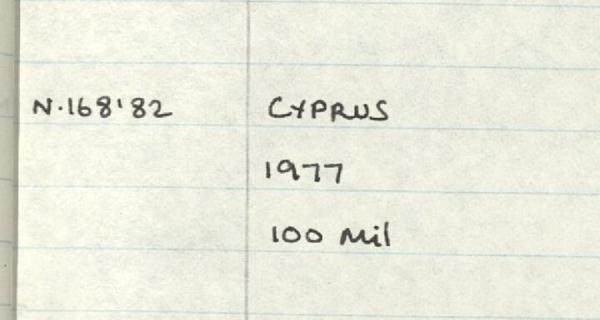 N.168'82 CYPRUS
1977
100 Mil